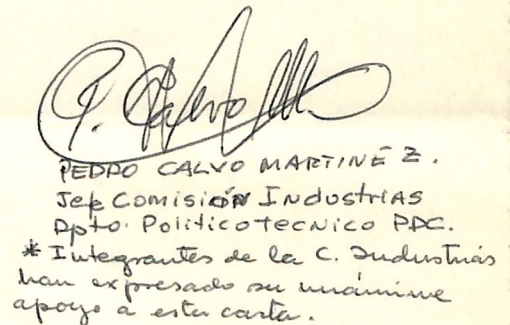 P. Calvo M
PEDRO CALVO MARTINEZ.
Jefe COMISIÓN INDUSTRIAS
Dpto. Politicotecnico PDC.
* Integrantes de la C. Industrias
han expresado su unánime
apoyo a esta carta.